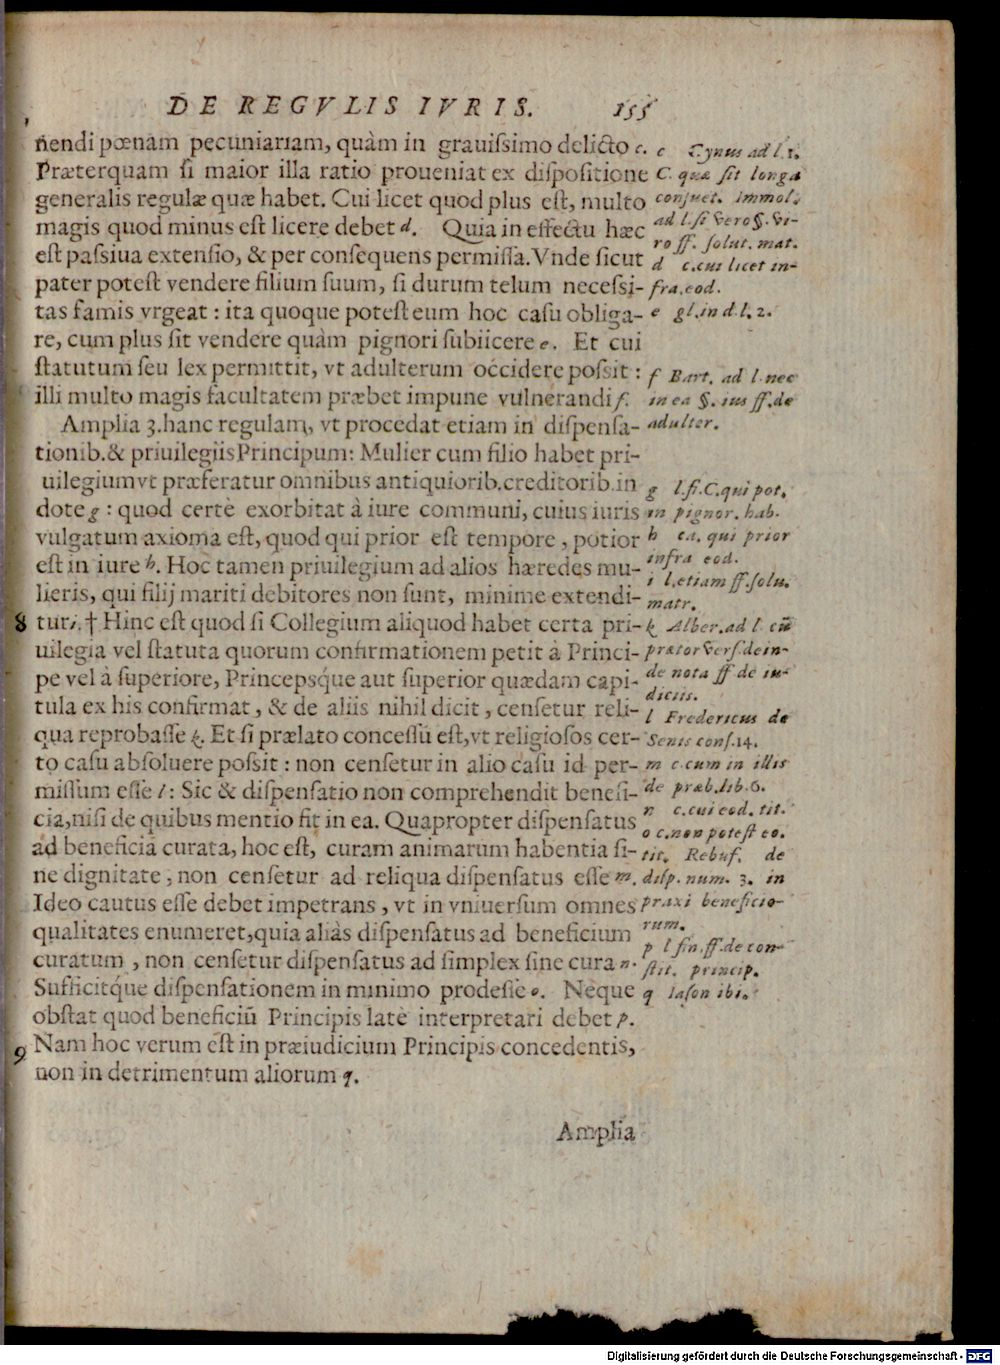 DE REGVLIS IVRIS. 155
nendi pœnam pecuniariam, quàm in grauiſſimo delicto c.
Præterquam ſi maior illa ratio proueniat ex diſpoſitione
generalis regulæ quæ habet. Cui licet quod plus eſt, multo
magis quod minus eſt licere debet d. Quia in effectu hæc
eſt paſsiua extenſio, & per conſequens permiſſa. Vnde ſicut
pater poteſt vendere filium ſuum, ſi durum telum neceſsi-
tas famis vrgeat : ita quoque poteſt eum hoc caſu obliga-
re, cum plus ſit vendere quàm pignori ſubiicere e. Et cui
ſtatutum ſeu lex permittit, vt adulterum occidere poſsit :
illi multo magis facultatem præbet impune vulnerandi f.
Amplia 3. hanc regulam, vt procedat etiam in diſpenſa-
tionib. & priuilegiis Principum: Mulier cum filio habet pri-
uilegium vt præferatur omnibus antiquiorib. creditorib. in
dote g : quod certè exorbitat à iure communi, cuius iuris
vulgatum axioma eſt, quod qui prior eſt tempore, potior
eſt in iure h. Hoc tamen priuilegium ad alios hæredes mu-
lieris, qui filij mariti debitores non ſunt, minime extendi-
8 tur i. † Hinc eſt quod ſi Collegium aliquod habet certa pri-
uilegia vel ſtatuta quorum confirmationem petit à Princi-
pe vel à ſuperiore, Princepsq́ue aut ſuperior quædam capi-
tula ex his confirmat, & de aliis nihil dicit, cenſetur reli-
qua reprobaſſe k. Et ſi prælato conceſſũ eſt, vt religioſos cer-
to caſu abſoluere poſsit : non cenſetur in alio caſu id per-
miſſum eſſe l : Sic & diſpenſatio non comprehendit benefi-
cia, niſi de quibus mentio fit in ea. Quapropter diſpenſatus
ad beneficia curata, hoc eſt, curam animarum habentia ſi-
ne dignitate, non cenſetur ad reliqua diſpenſatus eſſe m.
Ideo cautus eſſe debet impetrans, vt in vniuerſum omnes
qualitates enumeret, quia aliàs diſpenſatus ad beneficium
curatum, non cenſetur diſpenſatus ad ſimplex ſine cura n.
Sufficitq́ue diſpenſationem in minimo prodeſſe o. Neque
obſtat quod beneficiũ Principis latè interpretari debet p.
9 Nam hoc verum eſt in præiudicium Principis concedentis,
non in detrimentum aliorum q.
Amplia
c Cynus ad l. 1.
C. quæ ſit longa
conſuet. immol.
ad l. ſi vero §. vi-
ro ff. ſolut. mat.
d c. cui licet in-
fra. eod.
e gl. in d. l. 2.
f Bart. ad l. nec
in ea §. ius ff. de
adulter.
g l. fi. C. qui pot.
in pignor. hab.
h ca. qui prior
infra eod.
i l. etiam ff. ſolu.
matr.
k Alber. ad l. cũ
prætor verſ. dein-
de nota ff de iu-
diciis.
l Fredericus de
Senis conſ. 14.
m c. cum in illis
de præb. lib. 6.
n c. cui eod. tit.
o c. non poteſt eo.
tit. Rebuf. de
diſp. num. 3. in
praxi beneficio-
rum.
p l fin. ff. de con-
ſtit. princip.
q Iaſon ibi.
Digitalisierung gefördert durch die Deutsche Forschungsgemeinschaft - DFG